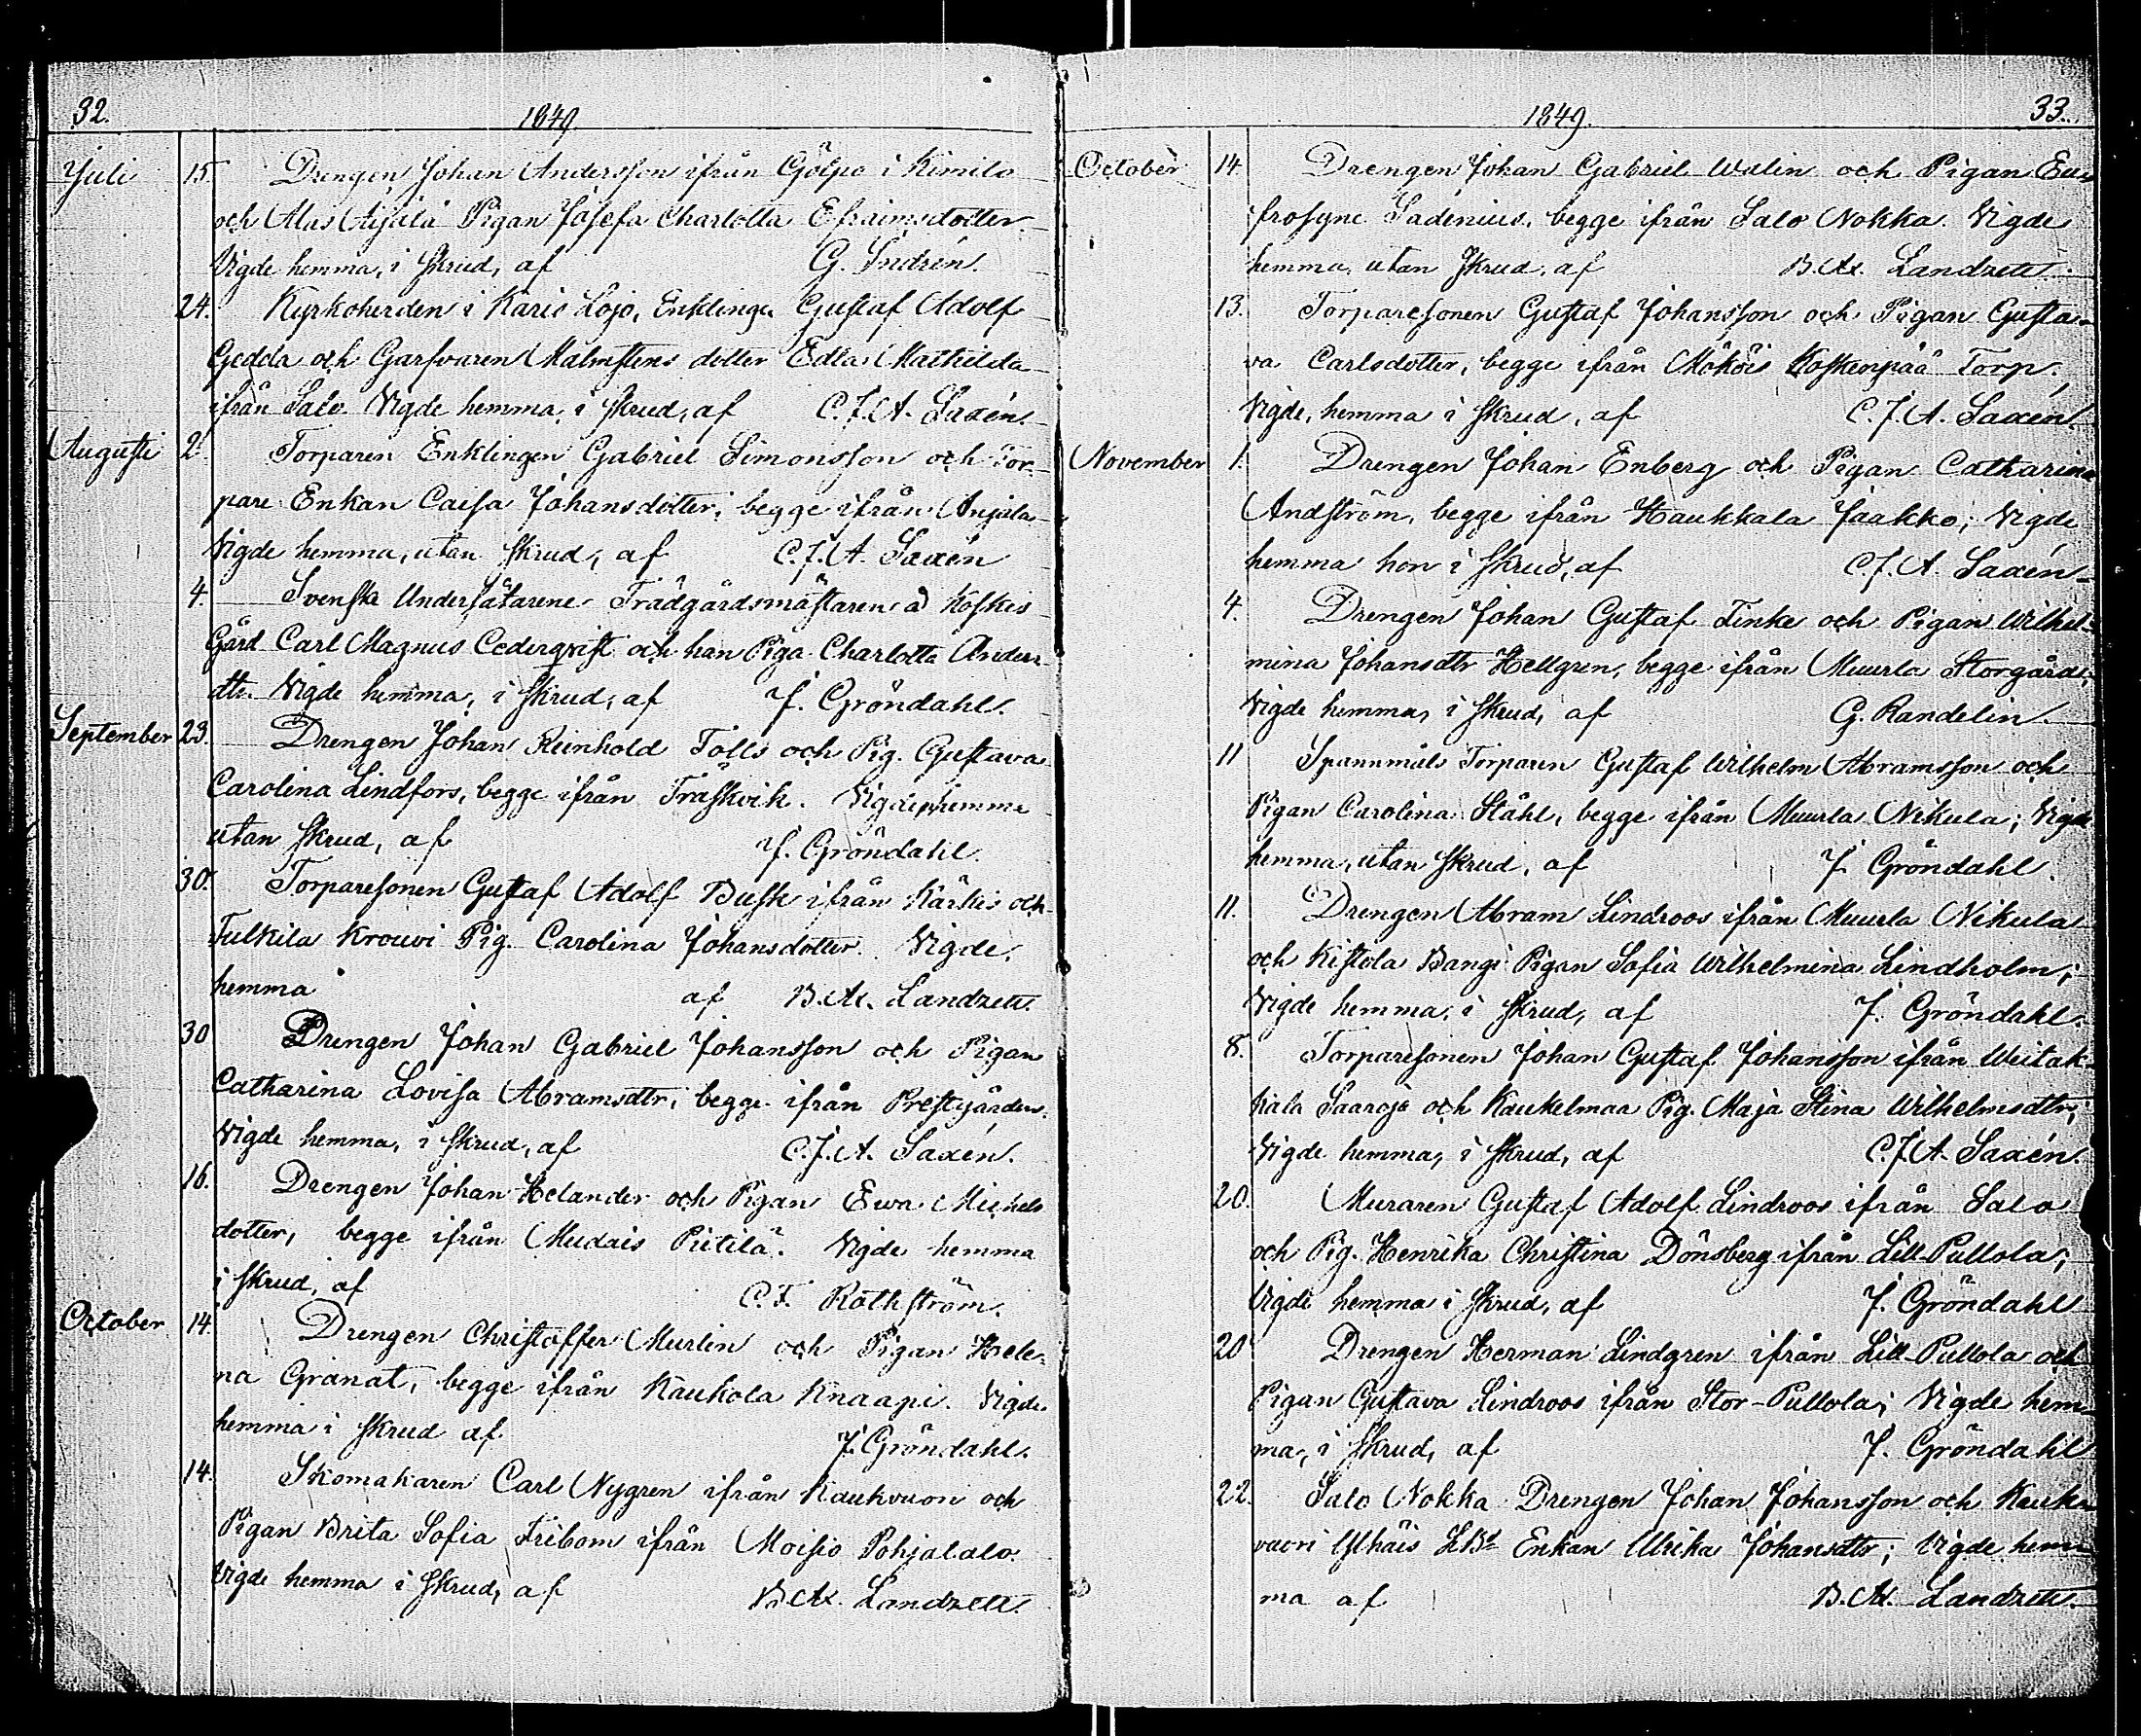 32.
1849.
Juli 15. Drengen Johan Andersson ifrån Gölpo i Kimito
och Alas Aijälä Pigan Josefa Charlotta Efraimsdotter.
Vigde hemma, i skrud, af G. Indrén.
24. Kyrkoherden i Karis Lojo, Enklinge Gustaf Adolf
Gedda och Garfvaren Malmstens dotter Edla Mathilda
ifrån Salo. Vigde hemma, i skrud, af C.J.A. Saxén.
Augusti 2. Torparen Enklingen Gabriel Simonsson och Tor-
pare Enkan Caisa Johansdotter, begge ifrån Anjala
Vigde hemma, utan skrud, af C.J.A. Saxén
4. Svenska Undersåtarene Trädgårdsmästaren å Koskis
Gård Carl Magnus Cederqvist och han Piga Charlotta Anders-
dtr. Vigde hemma, i skrud, af J. Gröndahl.
September 23. Drengen Johan Reinhold Tolls och Pig. Gustava
Carolina Lindfors, begge ifrån Träskvik. Vigde, hemma
utan skrud, af J. Gröndahl.
30. Torparesonen Gustaf Adolf Busk ifrån Kärkis och
Tulkila Krouvi Pig. Carolina Johansdotter. Vigde,
hemma af B.Ax. Landzett.
30 Drengen Johan Gabriel Johansson och Pigan
Catharina Lovisa Abramsdtr, begge ifrån Prestgården.
Vigde hemma, i skrud, af C.J.A. Saxén.
16. Drengen Johan Helander och Pigan Ewa Michels
dotter, begge ifrån Mudais Piitilä. Vigde hemma
i skrud, af C.F. Rothström.
October 14. Drengen Christoffer Murlin och Pigan Hele-
na Granat, begge ifrån Kaukola Knaapi. Vigde
hemma i skrud af J. Gröndahl.
14. Skomakaren Carl Nygren ifrån Kaukvuori och
Pigan Brita Sofia Fribom ifrån Moisio Pohjalalo.
Vigde hemma i skrud, af B.Ax. Landzett.
1849.
33.
October 14. Drengen Johan Gabriel Walin och Pigan Eu-
frosyne Sadenius, begge ifrån Salo Nokka. Vigde
hemma, utan skrud, af B.Ax. Landzett.
13. Torparesonen Gustaf Johansson och Pigan Gusta-
va Carlsdotter, begge ifrån Mököis Koskenpää Torp.
Vigde, hemma i skrud, af C.J.A. Saxén.
November 1. Drengen Johan Enberg och Pigan Catharina
Andström, begge ifrån Haukkala Jaakko; Vigde
hemma hon i skrud, af C.J.A. Saxén
4. Drengen Johan Gustaf Finke och Pigan Wilhel-
mina Johansdtr Hellgren, begge ifrån Muurla Storgård;
Vigde hemma, i skrud, af G. Randelin.
11 Spannmåls Torparen Gustaf Wilhelm Abramsson och
Pigan Carolina Ståhl, begge ifrån Muurla Nikula; Vigde
hemma, utan skrud, af J. Gröndahl.
11. Drengen Abram Lindroos ifrån Muurla Nikula
och Kistola Bangi Pigan Sofia Wilhelmina Lindholm;
Vigde hemma, i skrud, af J. Gröndahl.
8. Torparesonen Johan Gustaf Johansson ifrån Weitak-
kala Saaroje och Kaukelmaa Pig. Maja Stina Wilhelmsdtr;
Vigde hemma, i skrud, af C.J.A. Saxén.
20. Muraren Gustaf Adolf Lindroos ifrån Salo
och Pig. Henrika Christina Dönsberg ifrån Lill-Pullola;
Vigde hemma i skrud, af J. Gröndahl
20 Drengen Herman Lindgren ifrån Lill-Pullola och
Pigan Gustava Lindroos ifrån Stor-Pullola; Vigde hem-
ma, i skrud, af J. Gröndahl
22. Salo Nokka Drengen Johan Johansson och Kauka
vuori Ylhäis Enkan Ulrika Johansdtr; Vigde hem-
ma af B.Ax. Landzett.